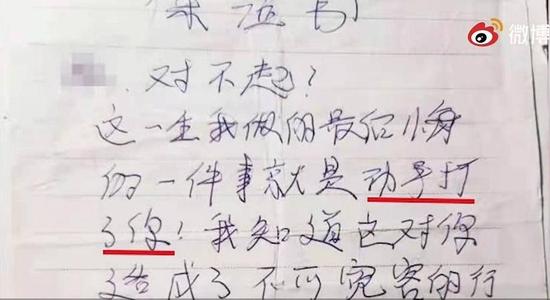 保证书
微博
对不起？
这一生我做的最后悔
的一件事就是动手打
了你！我知道这对你
造成了不可宽容的行